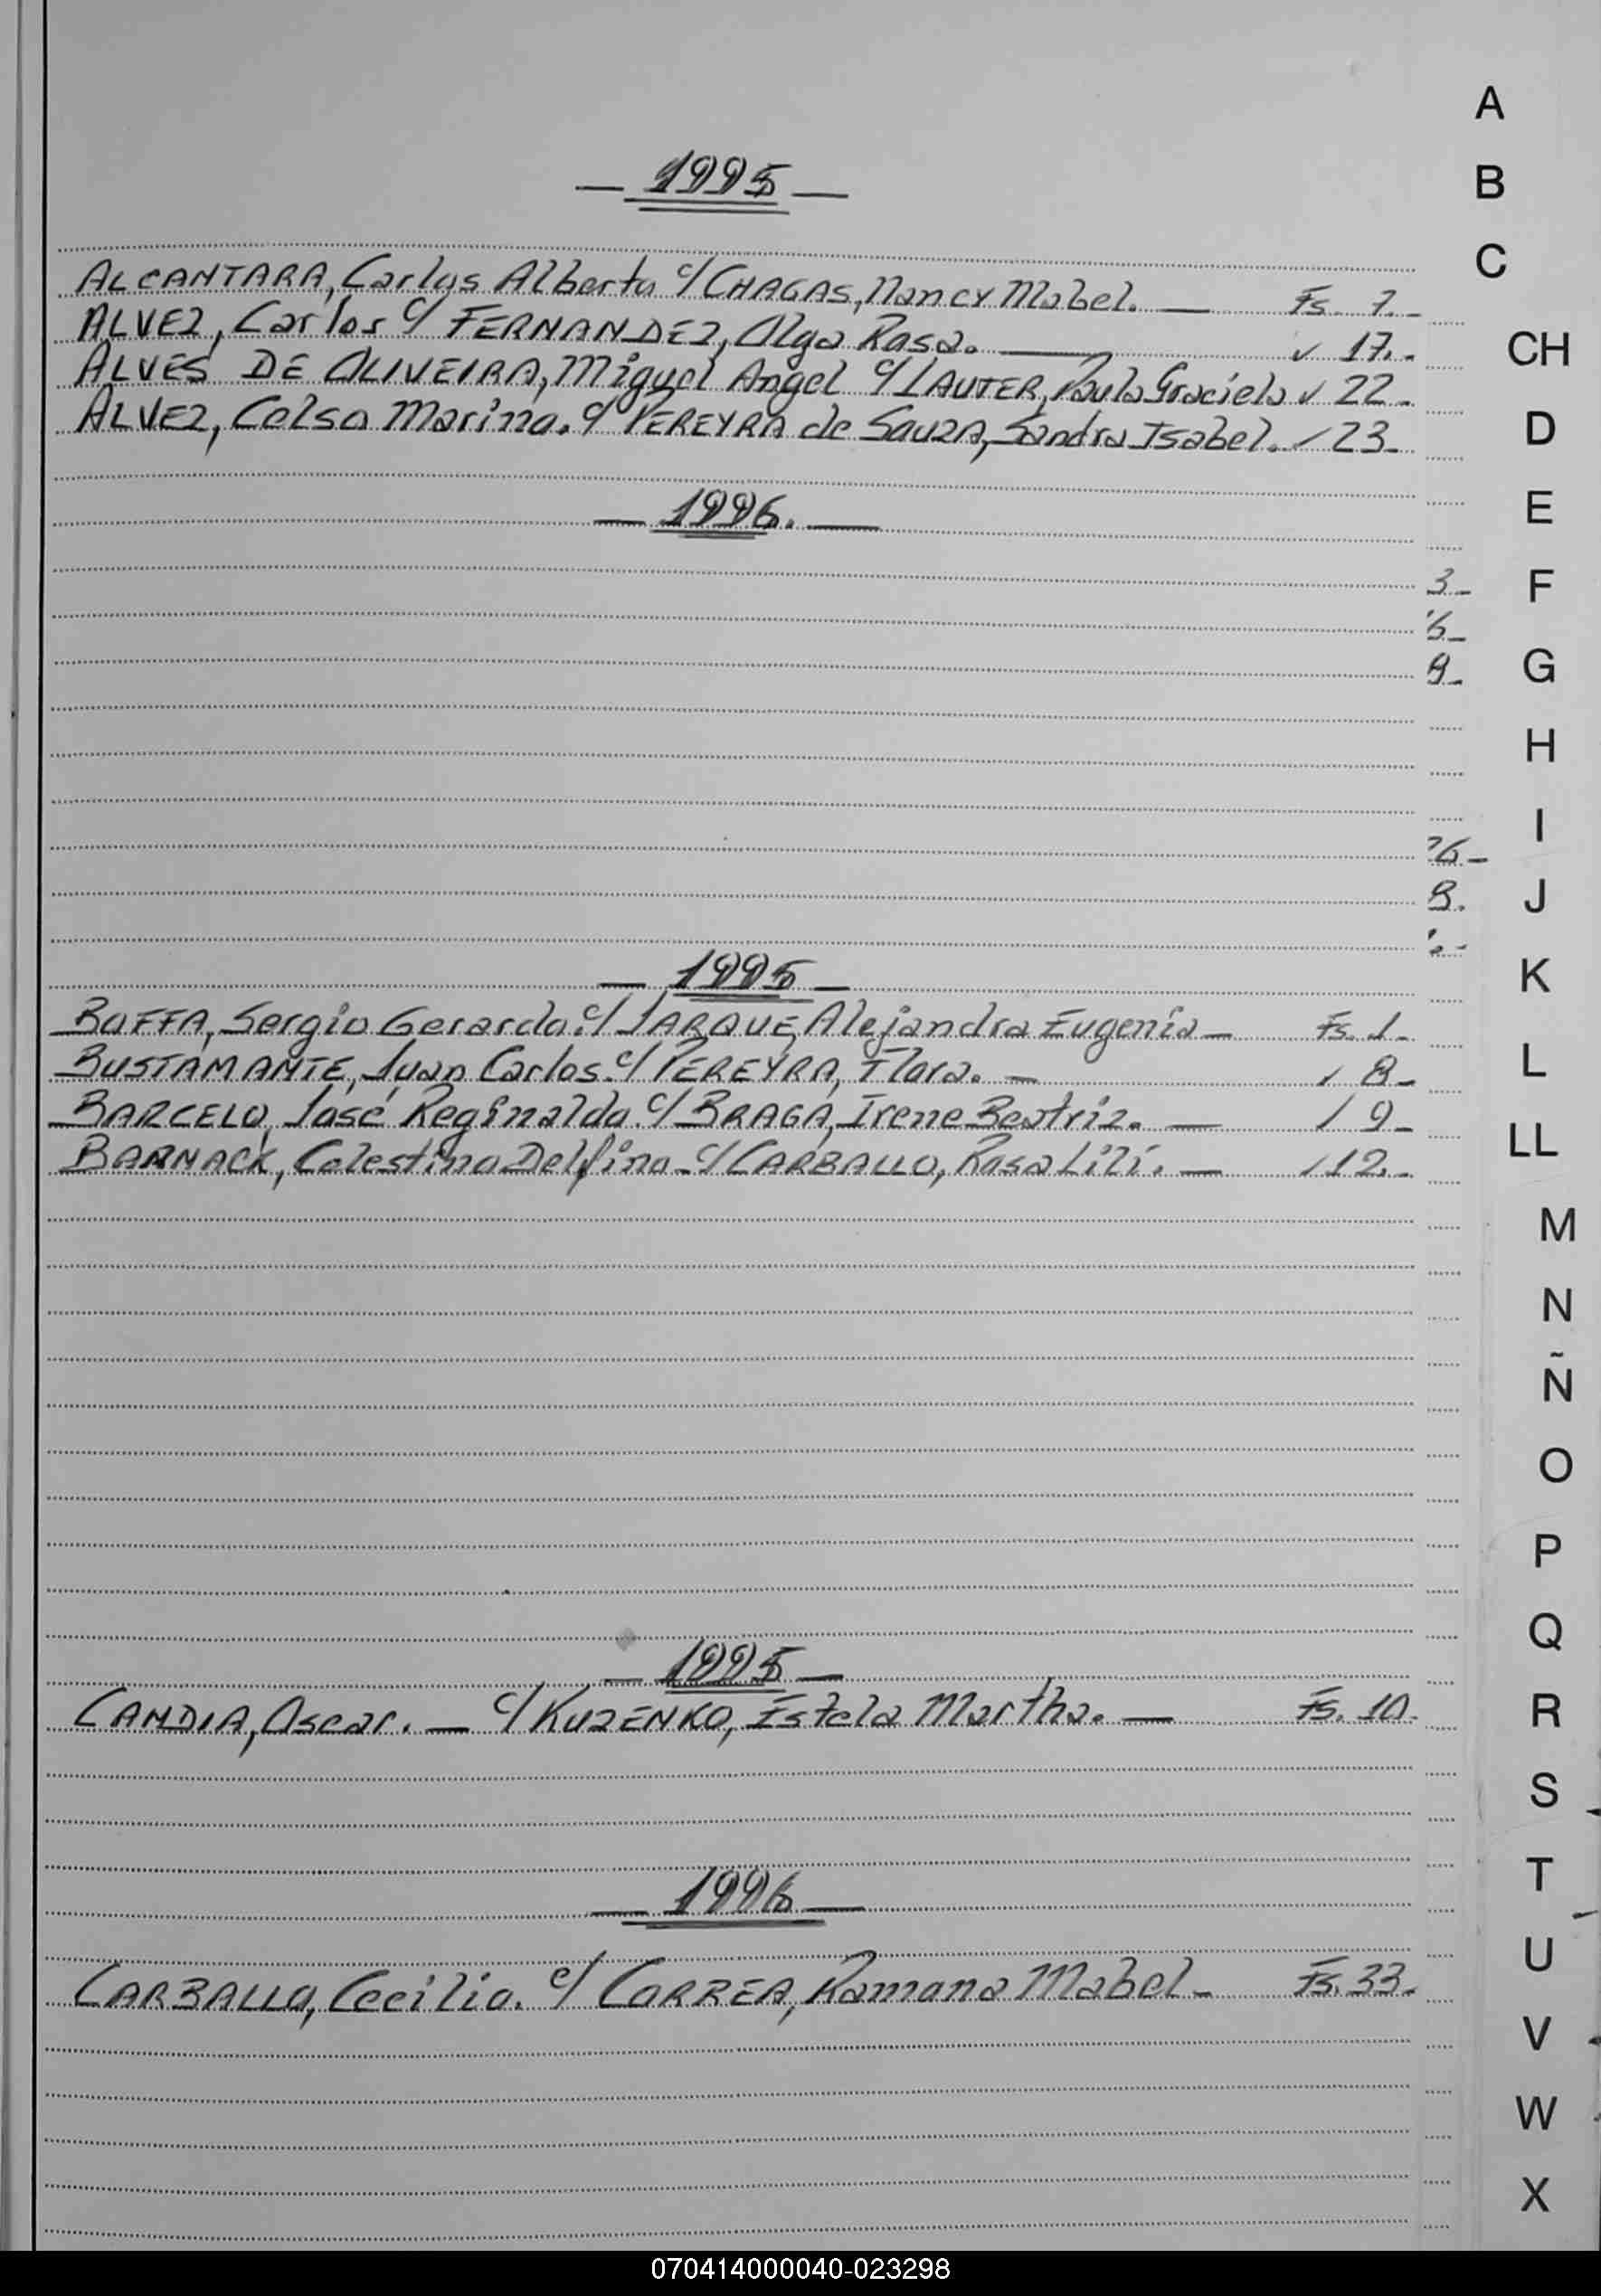 — 1995 —
ALCANTARA, Carlos Alberto c/ CHAGAS, Nancy Mabel. — Fs. 7.-
ALVEZ, Carlos c/ FERNANDEZ, Olga Rosa. — " 17.-
ALVES DE OLIVEIRA, Miguel Angel c/ LAUTER, Paula Graciela " 22.-
ALVEZ, Celso Marino. c/ PEREYRA de SauzA, Sandra Isabel. " 23.-
— 1996. —
3.-
9.-
— 1995 —
BOFFA, Sergio Gerardo. c/ JARQUE, Alejandra Eugenia — Fs. 1.-
BUSTAMANTE, Juan Carlos. c/ PEREYRA, Flora. — " 8.-
BARCELO, José Reginaldo. c/ BRAGA, Irene Beatriz. — " 9.-
BARNACK, Celestino Delfino - c/ CARBALLO, Rosa Lilí. — " 12.-
— 1995 —
CANDIA, Oscar. — c/ KUZENKO, Estela Martha. — Fs. 10.
— 1996 —
CARBALLO, Cecilio. c/ CORREA, Ramona Mabel - Fs. 33.-
A
B
C
CH
D
E
F
G
H
I
J
K
L
LL
M
N
Ñ
O
P
Q
R
S
T
U
V
W
X
070414000040-023298